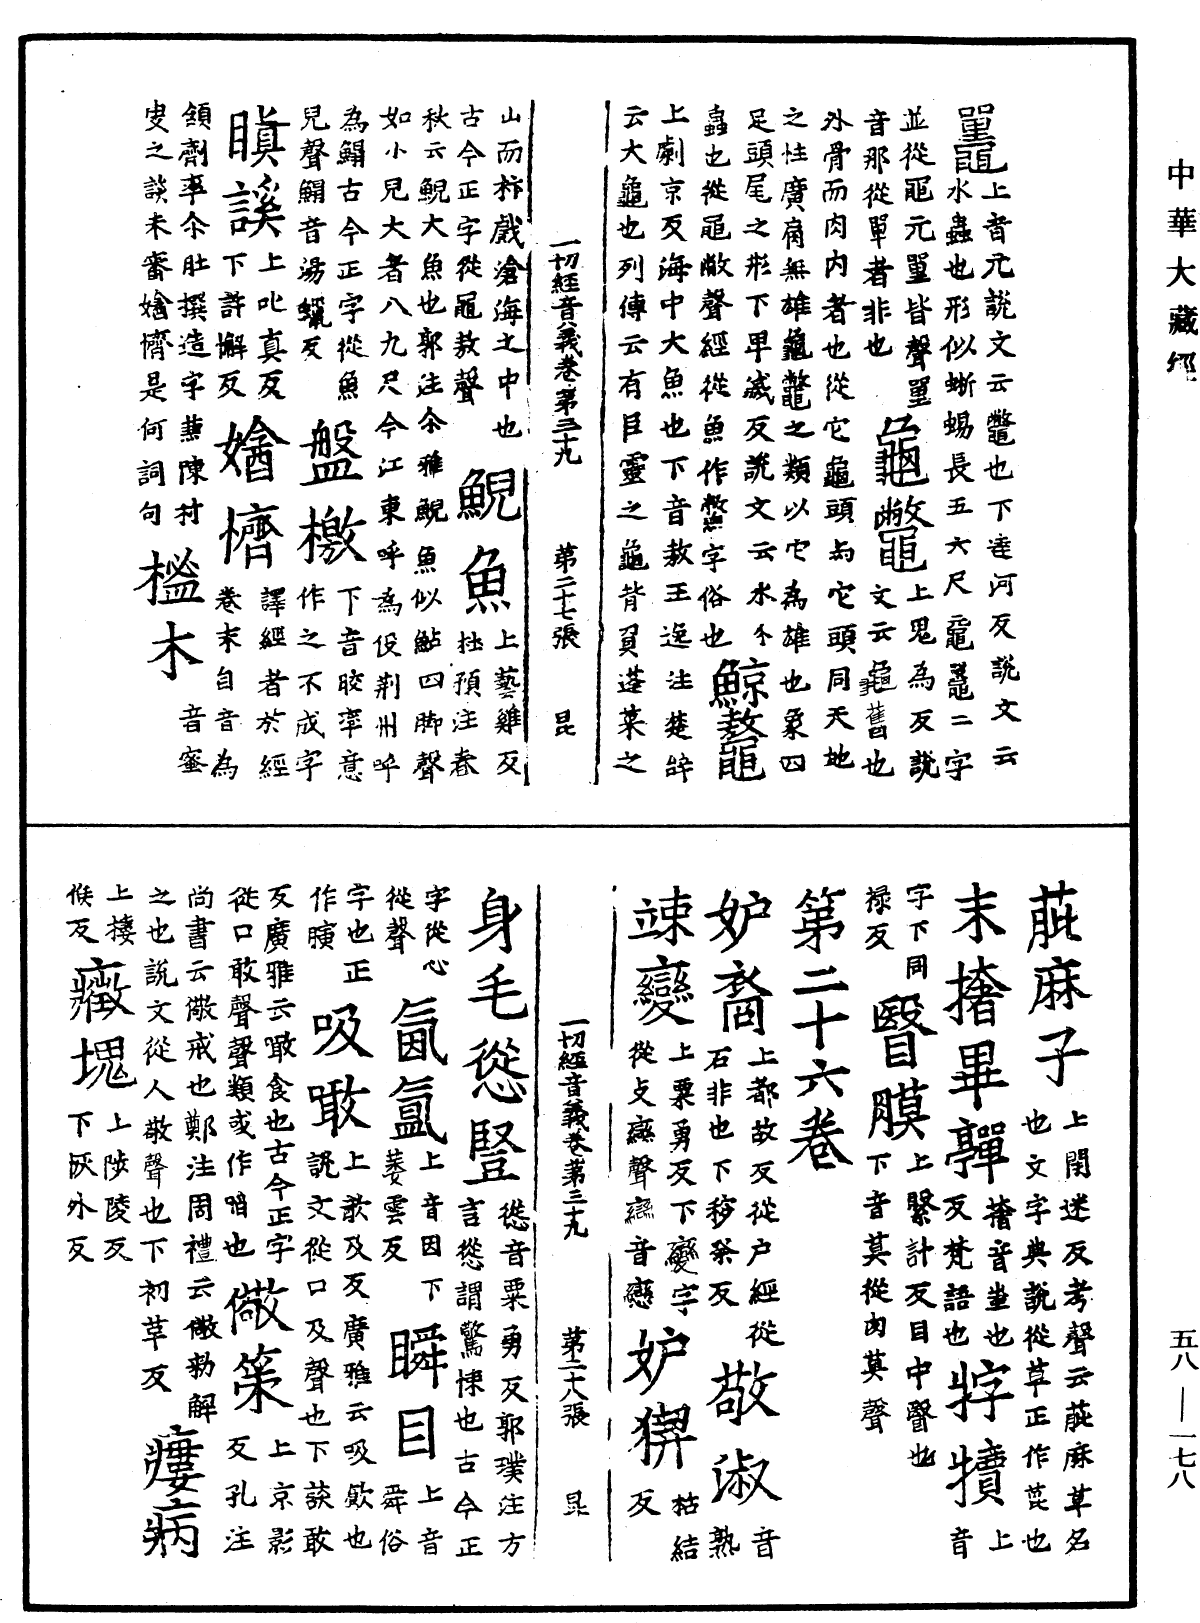 中華大藏經
鼉上音元說文云鼈也下達河反說文云
水蟲也形似蜥蜴長五六尺黿鼉二字
並從黽元單皆聲單
音那從單者非也
龜鼈上鬼為反說
文云龜舊也
外骨而肉內者也從它龜頭與它頭同天地
之性廣肩無雄龜鼈之類以它為雄也象四
足頭尾之形下卑滅反說文云水介
蟲也從黽敝聲經從魚作鱉字俗也
鯨鼇
上劇京反海中大魚也下音敖王逸注楚辞
云大龜也列傳云有巨靈之龜背負蓬萊之
一切經音義卷第三十九 第二十七張 昆
山而抃戲滄海之中也
古今正字從黽敖聲
鯢魚上藝雞反
杜預注春
秋云鯢大魚也郭注尒雅鯢魚似鮎四脚聲
如小兒大者八九尺今江東呼為伇荆州呼
為鰨古今正字從魚
兒聲鰨音湯蠟反
盤檄下音晈率意
作之不成字
瞋謑上叱真反
下許懈反
譯經者於經
卷末自音為
嬆懠
領劑率尒肚撰造字兼陳村
叟之談未審嬆懠是何詞句
榓木音蜜
莊麻子上閏迷反考聲云蓖麻草名
也文字典說從草正作萞也
末㨋畢鸅㨋音堂也
反梵語也
㹀犢上音
字下同
禄反
瞖膜上緊計反目中瞖也
下音莫從肉莫聲
第二十六卷
妒裔上都故反從户經從
石非也下移祭反
敬淑音熟
竦變上粟勇反下變字
從攴䜌聲䜌音戀
妒猰枯結反
一切經音義卷第三十九 第二十八張 昆
身毛慫豎慫音粟勇反郭璞注方
言慫謂驚悚也古今正
字從心
從聲
氤氳上音因下
蒕雲反
瞬目上音
舜俗
字也正
作瞚
吸噉上歆及反廣雅云吸飲也
說文從口及聲也下談敢
反廣雅云噉食也古今正字
從口敢聲聲類或作啗也
儆策上京影
反孔注
尚書云儆戒也鄭注周禮云儆勑解
之也說文從人敬聲也下初革反
瘻病
上接
候反
癥塊上陟陵反
下灰外反
五八—一七八